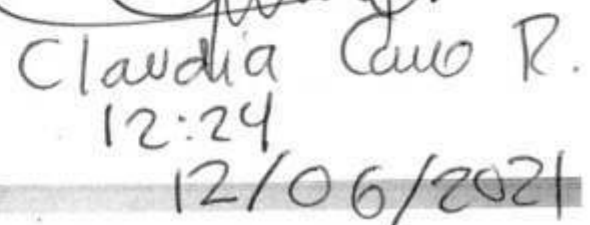 Claudia Cano R.
12:24
12/06/2021